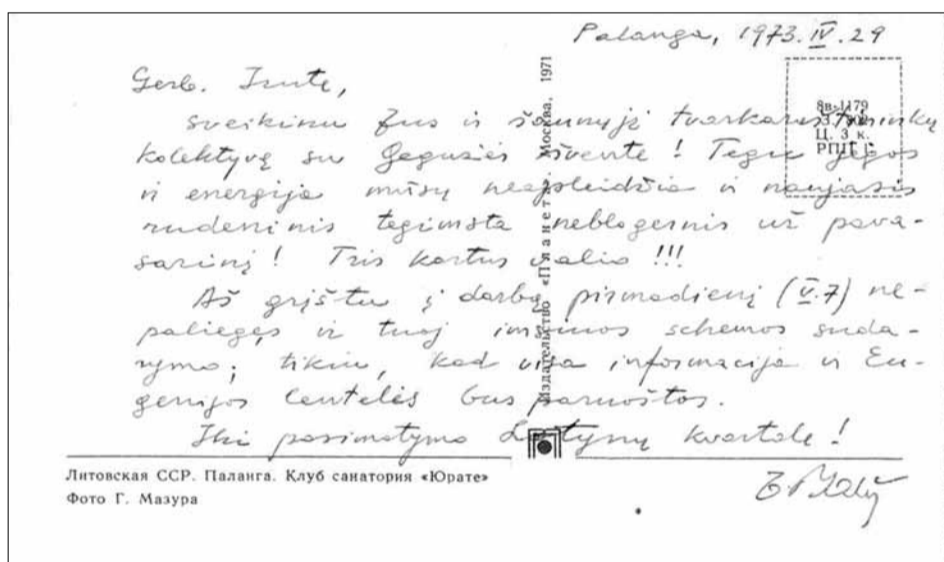 Palanga, 1973.IV.29
Gerb. Irute,
sveikinu Jus ir šaunųjį tvarkaraštininkų
kolektyvą su Gegužės švente! Tegu jėgos
ir energija mūsų neapleidžia ir naujasis
rudeninis tegimsta neblogesnis už pava-
sarinį! Tris kartus valio!!!
Aš grįštu į darbą pirmadienį (V.7) ne-
paliegęs ir tuoj imsimos schemos suda-
rymo; tikiu, kad visa informacija ir Eu-
genijos lentelės bus paruoštos.
Iki pasimatymo kvartale!
8в-1179
Ц. 3 к.
Издательство «Планета». Москва, 1971
Литовская ССР. Паланга. Клуб санатория «Юрате»
Фото Г. Мазура